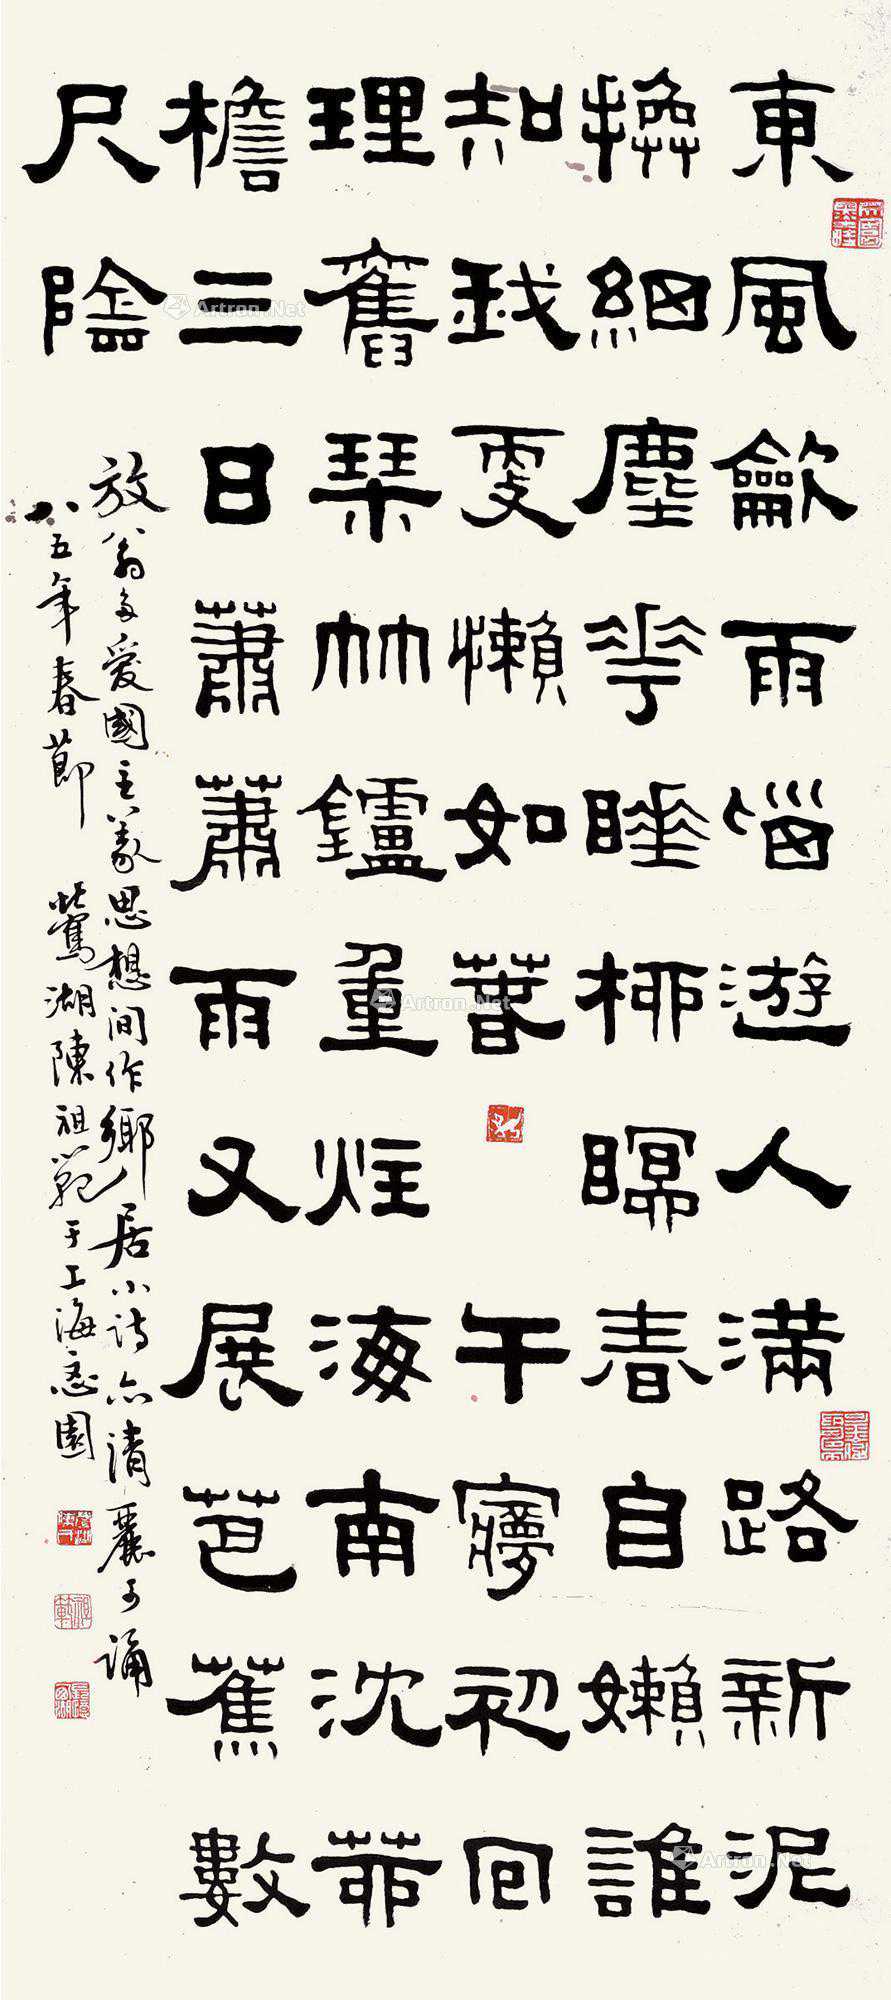 東風龡雨惱遊人滿路新泥
換細塵花睡柳瞑春自嬾誰
知我更懶如春 午夢初回
理舊琴竹鑪重炷海南沈茆
檐三日蕭蕭雨又展芭蕉數
尺陰
放翁多愛國主義思想间作鄉居小詩亦清麗可誦
八五年春節 鶯湖陳祖範于上海園
Artron.Net
Artron.Net
Artron.Net